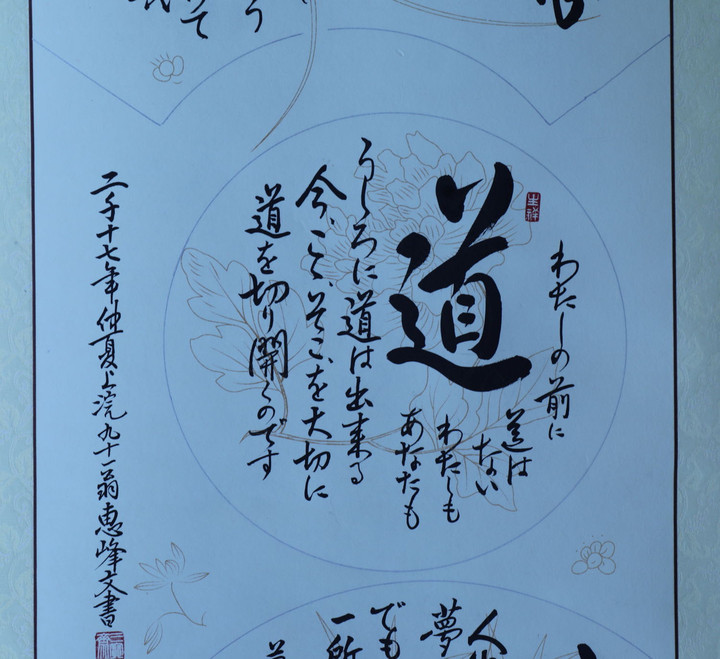 う
て
道
わたしの前に
道は
ない
わたしも
あなたも
うしろに道は出来る
今、こゝ、そこ、を大切に
道を切り開くのです
二千十七年仲夏上浣九十一翁恵峰文書
人
夢
でも
一所